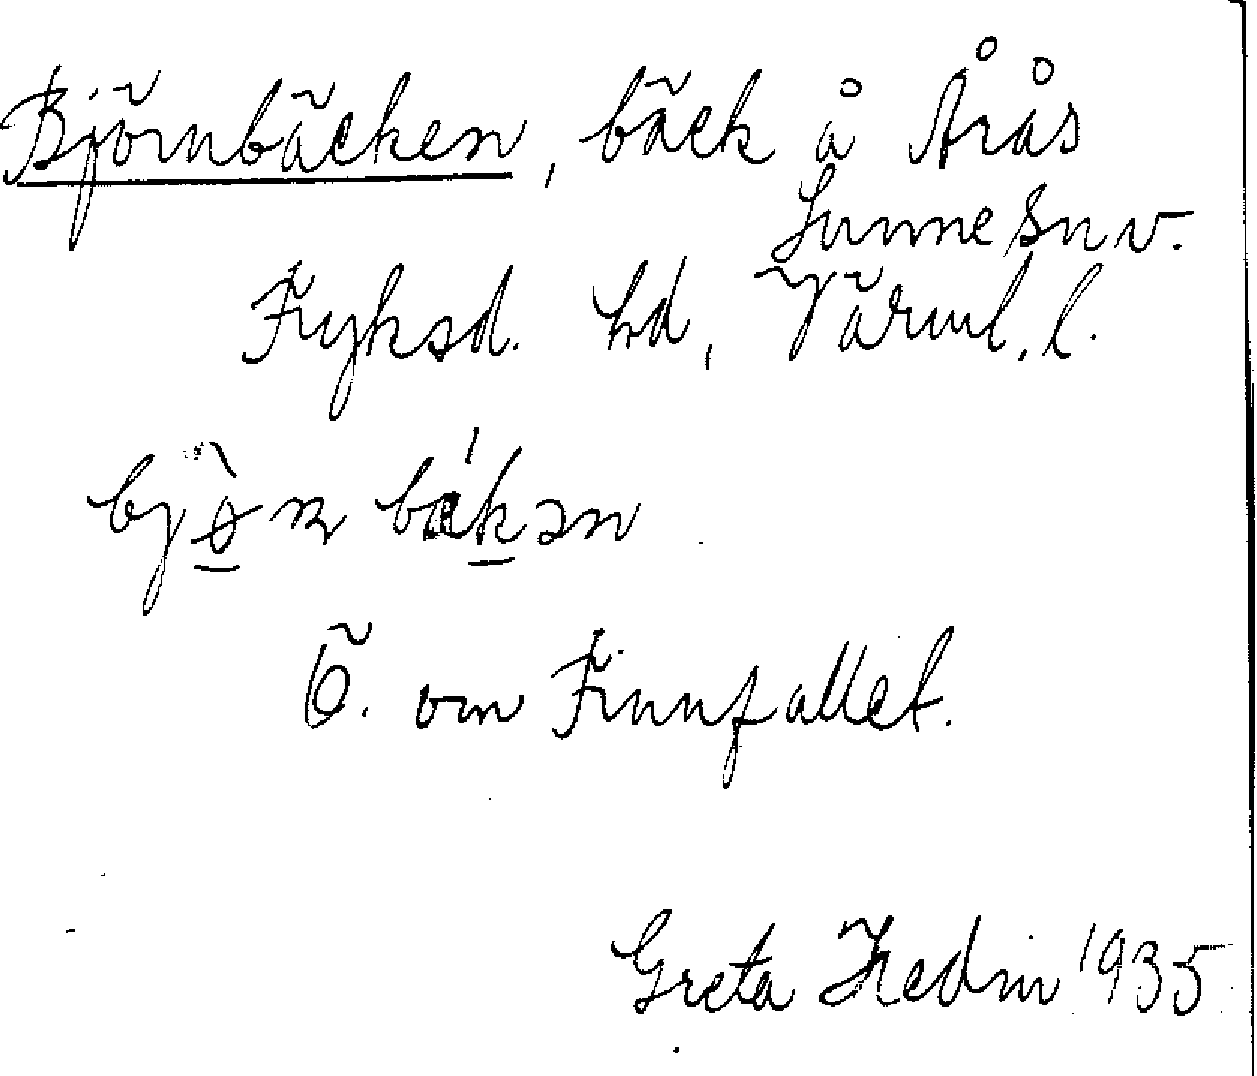 Björnbäcken, bäck å Årås
Sunne sn v.
Fryksd. hd, Värml. l.
bjö̀ɳ bä́kən
Ö. om Finnfallet.
Greta Hedin 1935